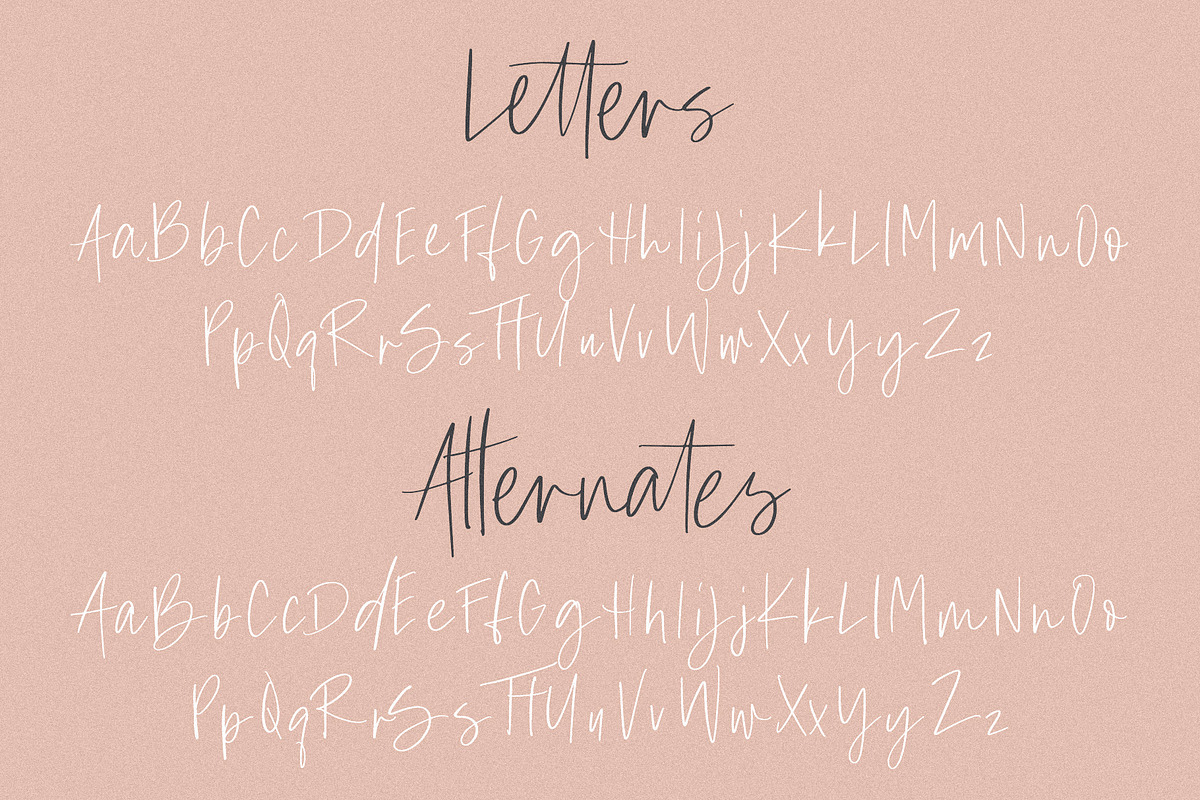 Letters
AaBbCcDdEeFfGgHhIiJjKkLlMmNnOo
PpQqRrSsTtUuVvWwXxYyZz
Alternates
AaBbCcDdEeFfGgHhIiJjKkLlMmNnOo
PpQqRrSsTtUuVvWwXxYyZz